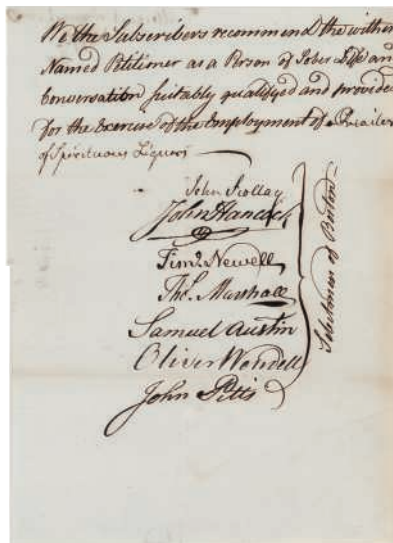 We the Subscribers recommend the within
Named Petitioner as a Person of sober Life and
Conversation suitably qualifyed and provided
for the Exercise of the Employment of a Retailer
of Spirituous Liquors
John Scollay
John Hancock
Timo. Newell
Thos. Marshall
Samuel Austin
Oliver Wendell
John Pitts
Selectmen of Boston